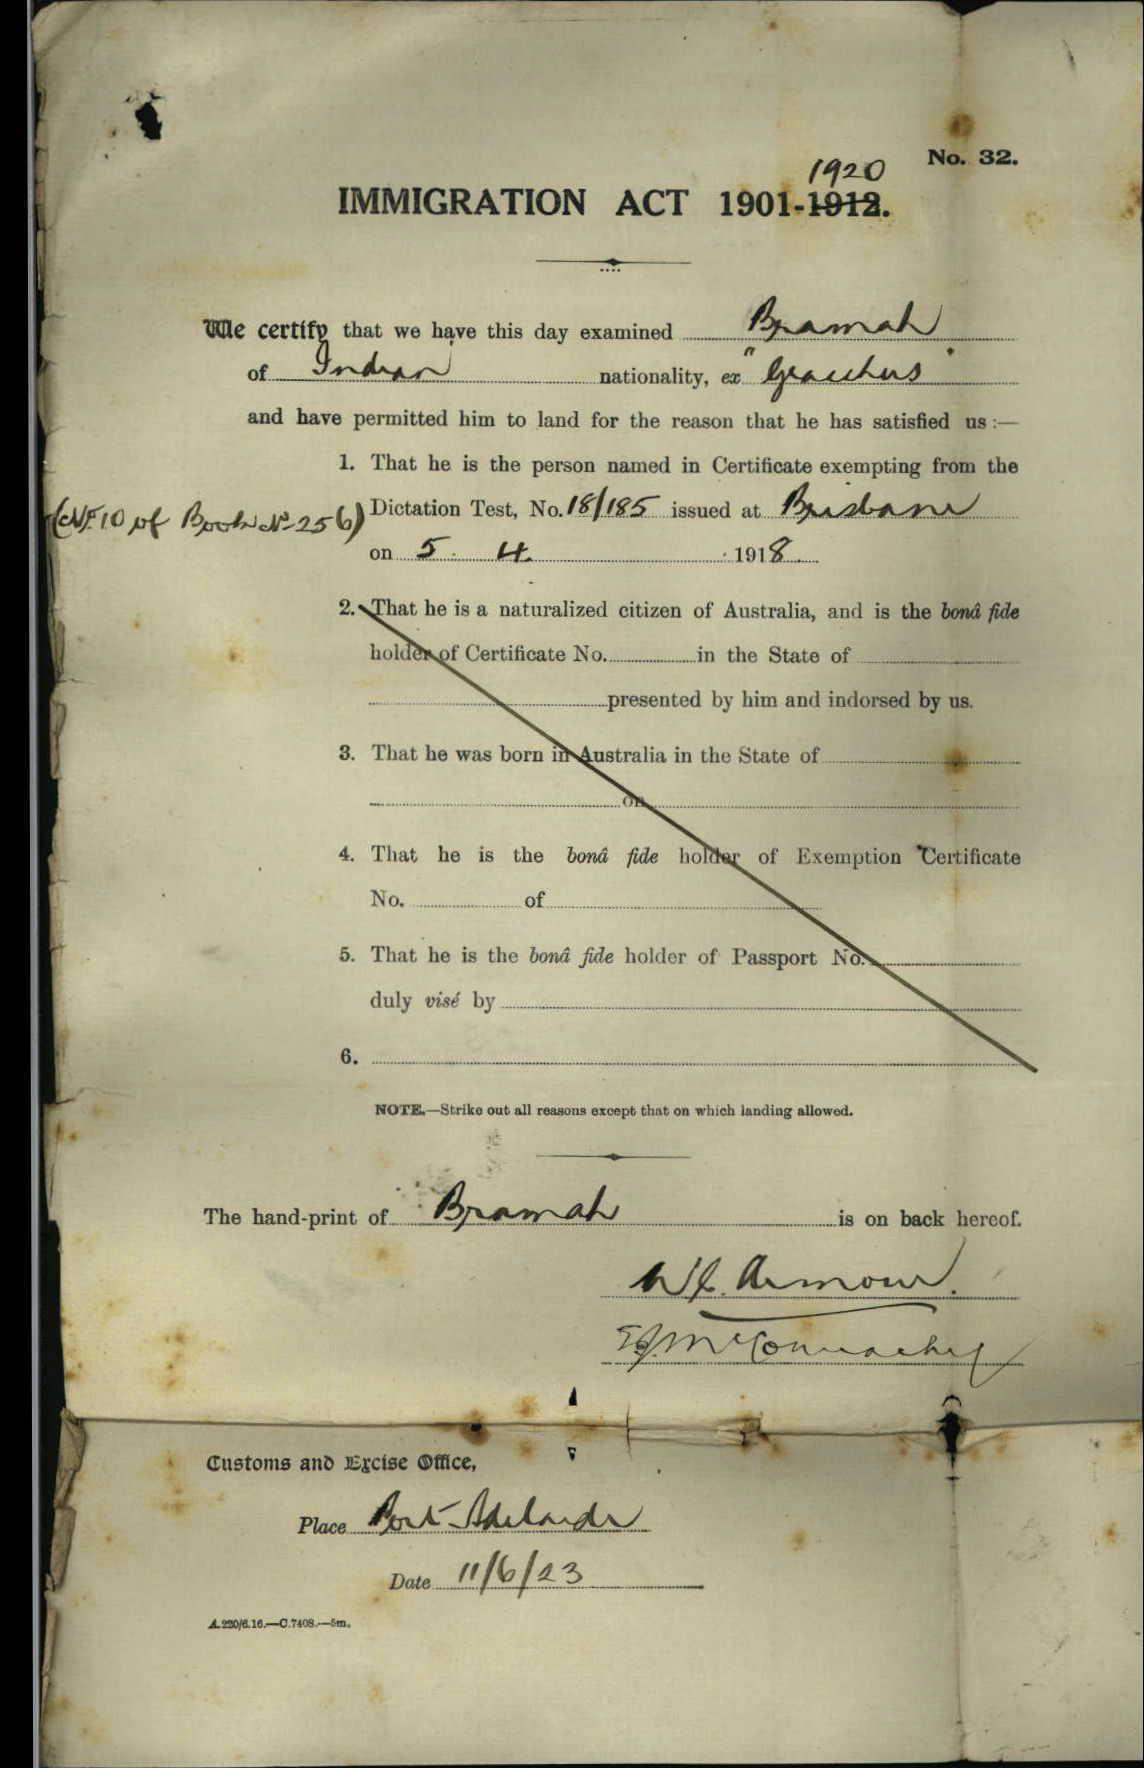 No. 32.
1920
IMMIGRATION ACT 1901-1912.
We certify that we have this day examined Bramah
of Indian nationality, ex "Gracchus"
and have permitted him to land for the reason that he has satisfied us :—
1. That he is the person named in Certificate exempting from the
(No. 10 of Book No 256) Dictation Test, No. 18/185 issued at Brisbane
on 5. 4. 1918.
2. That he is a naturalized citizen of Australia, and is the bonâ fide
holder of Certificate No. in the State of
presented by him and indorsed by us.
3. That he was born in Australia in the State of
on
4. That he is the bonâ fide holder of Exemption Certificate
No. of
5. That he is the bonâ fide holder of Passport No.
duly visé by
6.
NOTE.—Strike out all reasons except that on which landing allowed.
The hand-print of Bramah is on back hereof.
Armour.
McConnachy
Customs and Excise Office,
Place Port Adelaide
Date 11/6/23
A.220/6.16.—C.7408.—5m.